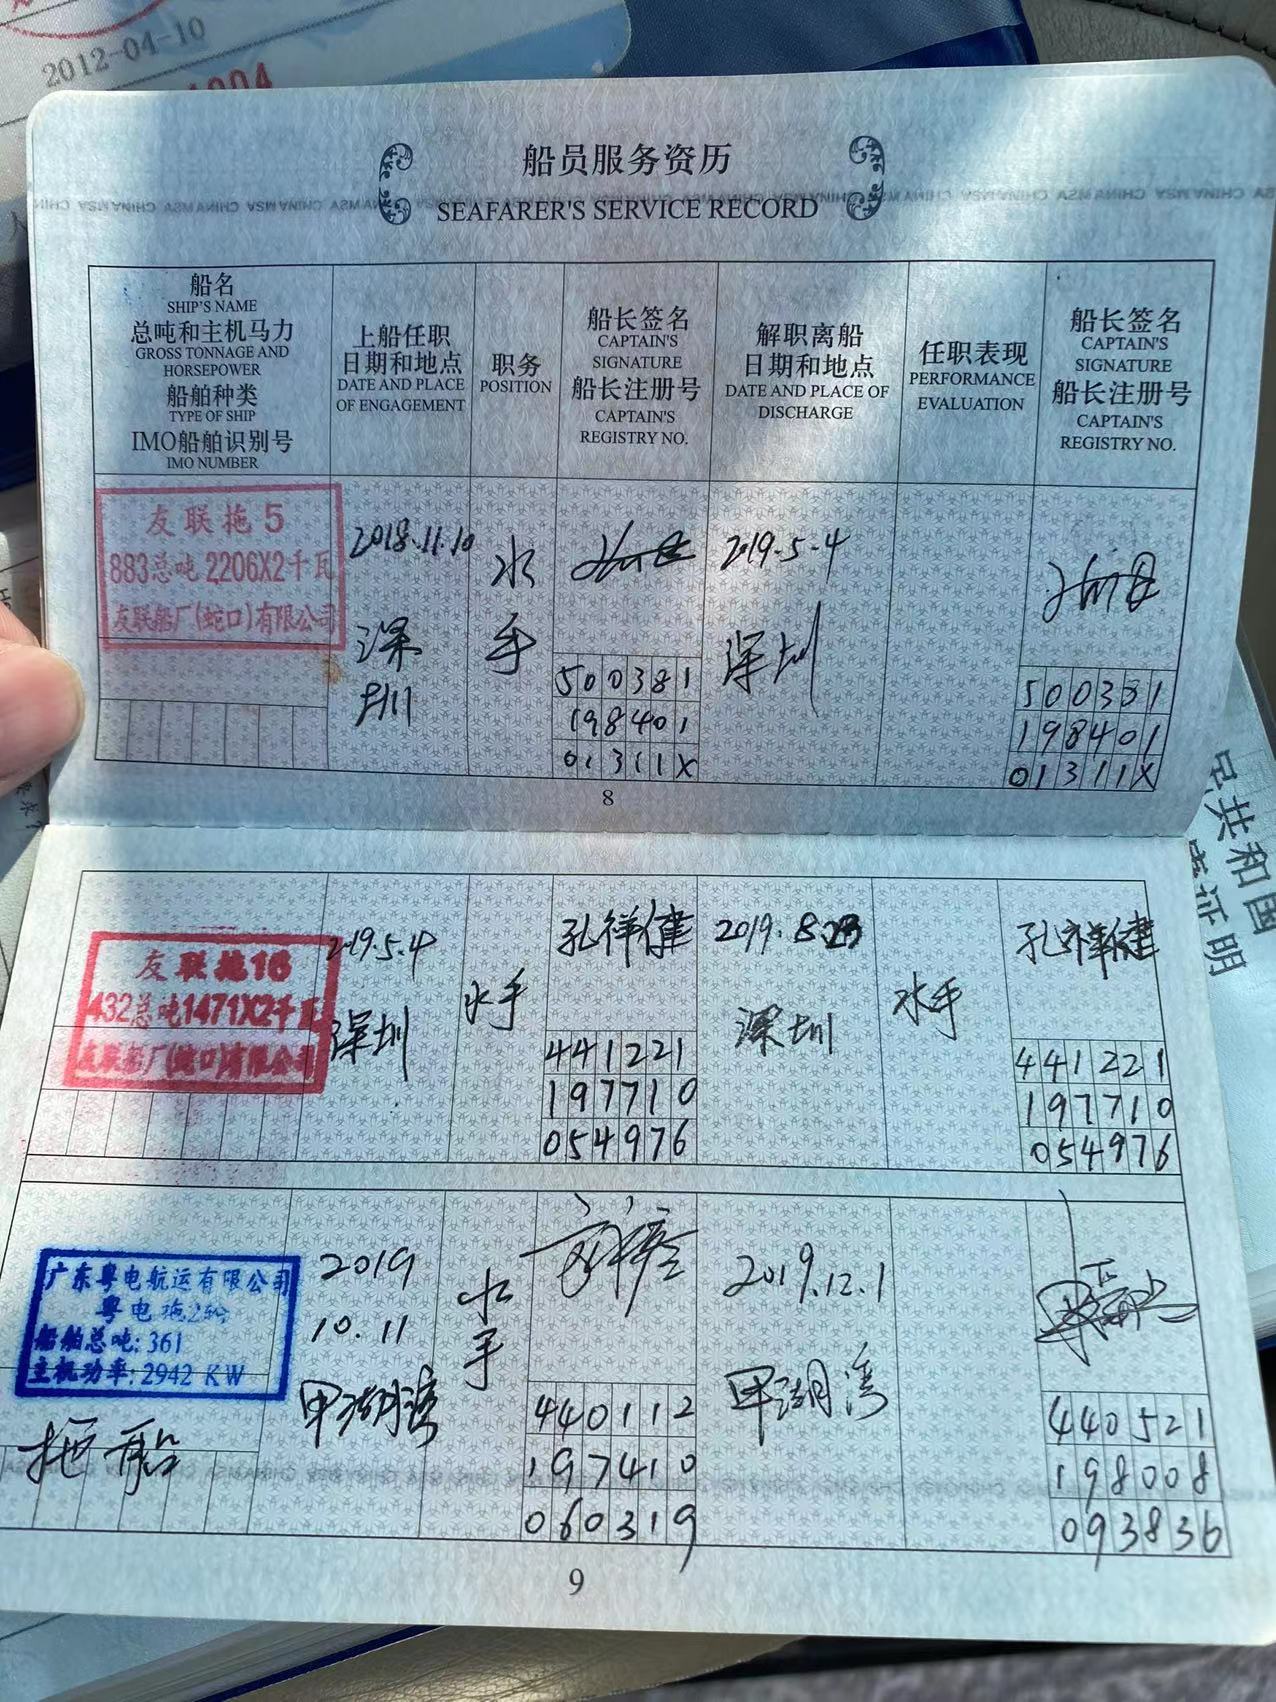 2012-04-10
船员服务资历
SEAFARER'S SERVICE RECORD
船名
SHIP'S NAME
总吨和主机马力
GROSS TONNAGE AND
HORSEPOWER
船舶种类
TYPE OF SHIP
IMO船舶识别号
IMO NUMBER
上船任职
日期和地点
DATE AND PLACE
OF ENGAGEMENT
职务
POSITION
船长签名
CAPTAIN'S
SIGNATURE
船长注册号
CAPTAIN'S
REGISTRY NO.
解职离船
日期和地点
DATE AND PLACE OF
DISCHARGE
任职表现
PERFORMANCE
EVALUATION
船长签名
CAPTAIN'S
SIGNATURE
船长注册号
CAPTAIN'S
REGISTRY NO.
友联拖5
883总吨 2206X2千瓦
友联船厂(蛇口)有限公司
2018.11.10
深
圳
水
手
500381
198401
01311X
2019.5.4
深圳
500381
198401
01311X
8
友联拖16
432总吨1471X2千瓦
友联船厂(蛇口)有限公司
2019.5.4
深圳
水手
孔祥健
441221
197710
054976
2019.8.23
深圳
水手
孔祥健
441221
197710
054976
广东粤电航运有限公司
粤电拖2轮
船舶总吨:361
主机功率:2942 KW
拖船
2019
10.11
甲湖湾
水
手
440112
197410
060319
2019.12.1
甲湖湾
440521
198008
093836
9
民共和国
证明